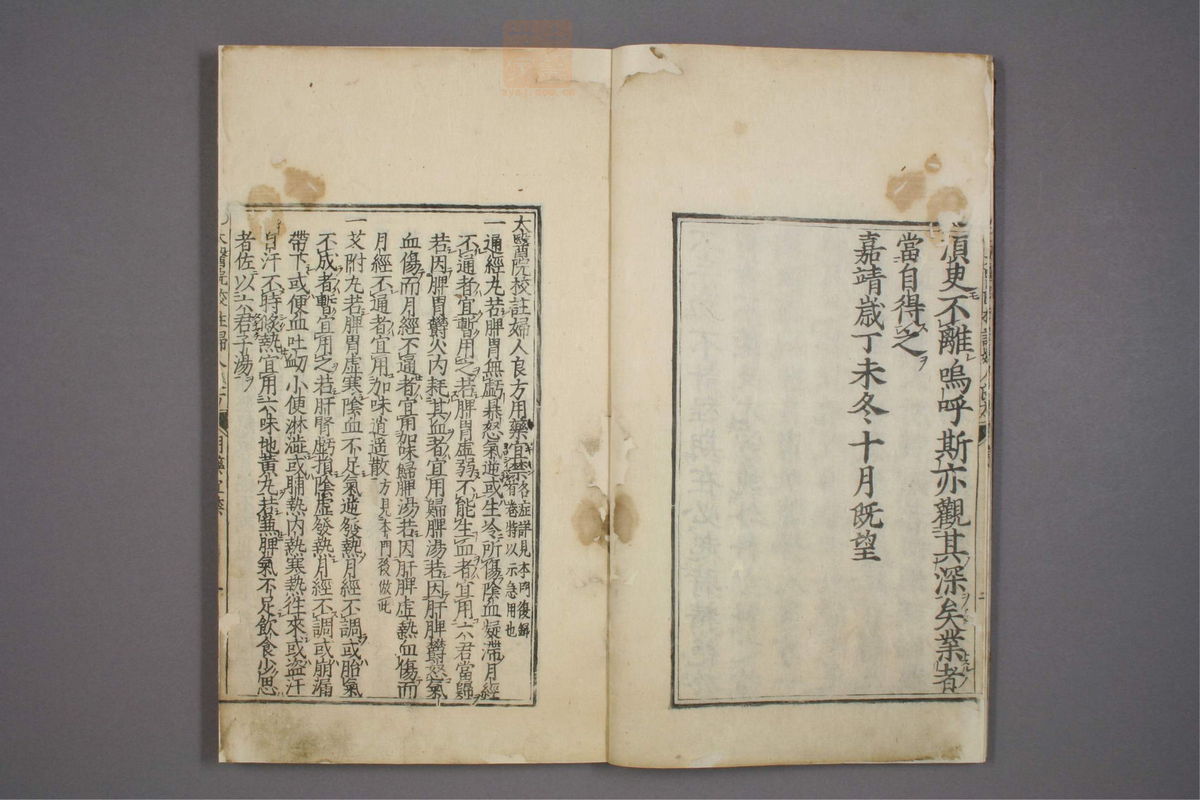 漬史不離嗚呼斯亦觀其深矣業者
當自得之
嘉靖歲丁未冬十月既望
太醫院校註婦人良方用藥宜禁各症詳見本門復錄首卷特以示急用也
一通經丸若脾胃無虧暴怒氣逆或生冷所傷陰血凝滯月經
不通者宜暫用之若脾胃虛弱不能生血者宜用六君當歸
若因脾胃鬱火内耗其血者宜用歸脾湯若因肝脾鬱怒氣
血傷而月經不通者宜用加味歸脾湯若因肝脾虛熱血傷而
月經不通者宜用加味逍遥散方見本門後倣此
一艾附丸若脾胃虛寒陰血不足氣逆發熱月經不調或胎氣
不成者暫宜用之若肝腎虧損陰虛發熱月經不調或崩漏
帶下或便血吐衂小便淋澁或晡熱内熱寒熱往來或盗汗
自汗不時倐熱宜用六味地黄丸若兼脾氣不足飲食少思
者佐以六君子湯